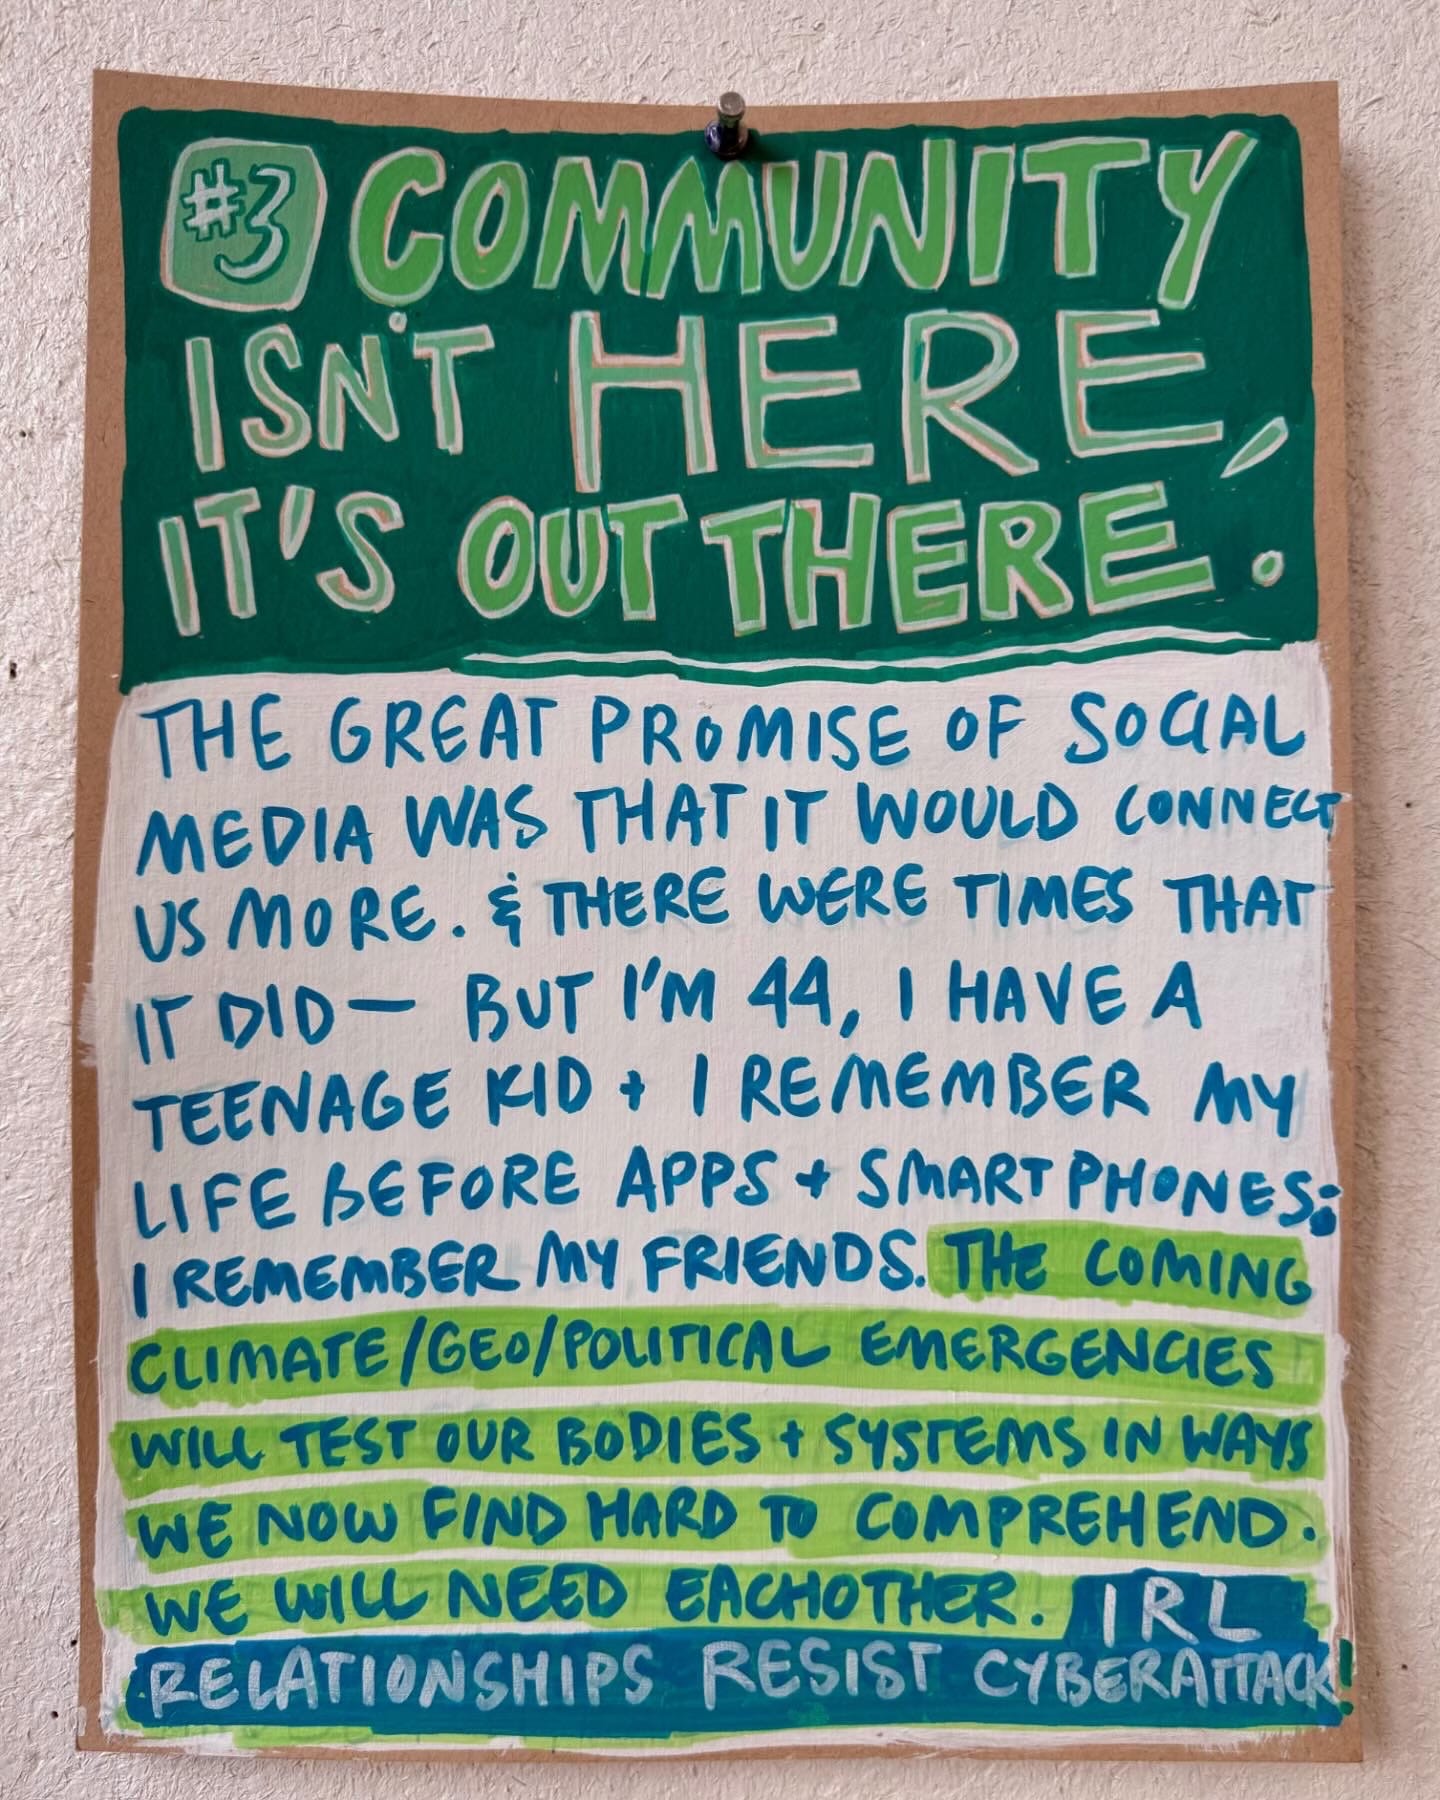 #3 COMMUNITY
ISN'T HERE,
IT'S OUT THERE.
THE GREAT PROMISE OF SOCIAL
MEDIA WAS THAT IT WOULD CONNECT
US MORE. & THERE WERE TIMES THAT
IT DID— BUT I'M 44, I HAVE A
TEENAGE KID + I REMEMBER MY
LIFE BEFORE APPS + SMARTPHONES:
I REMEMBER MY FRIENDS. THE COMING
CLIMATE/GEO/POLITICAL EMERGENCIES
WILL TEST OUR BODIES + SYSTEMS IN WAYS
WE NOW FIND HARD TO COMPREHEND.
WE WILL NEED EACHOTHER. IRL
RELATIONSHIPS RESIST CYBERATTACK!